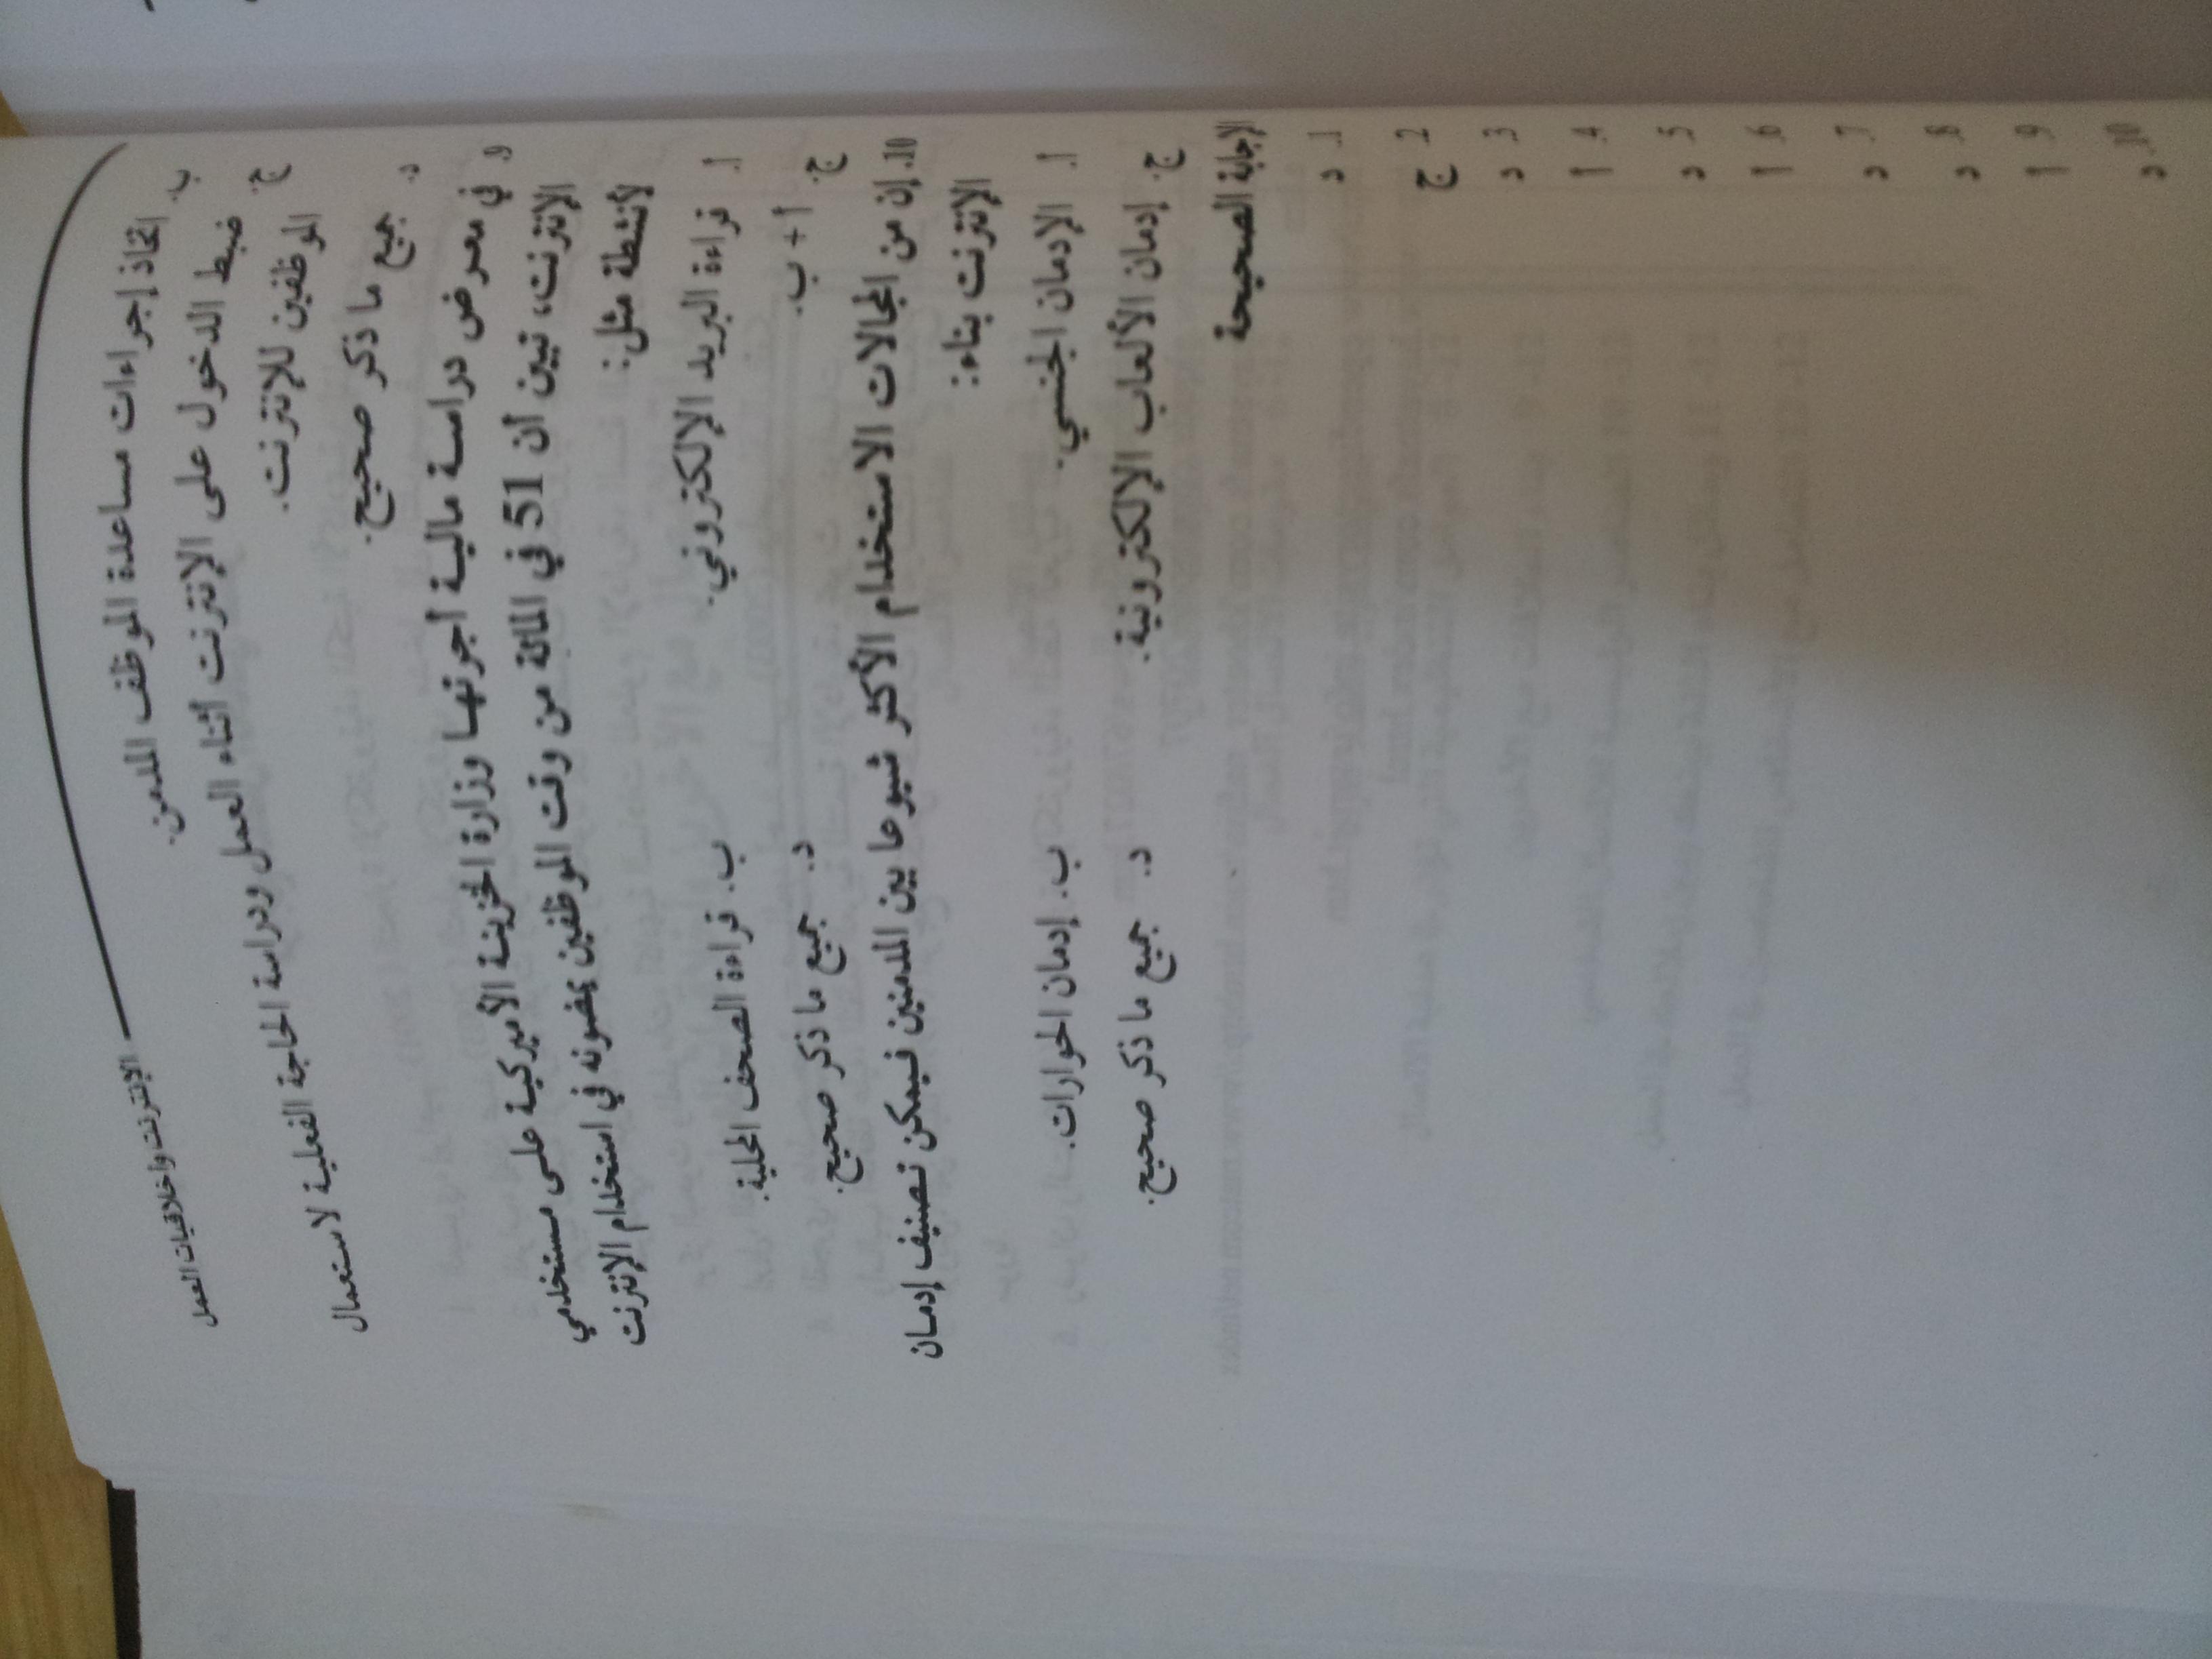 الإنترنت وأخلاقيات العمل
ب. اتخاذ إجراءات مساعدة الموظف المدمن.
ج. ضبط الدخول على الإنترنت أثناء العمل ودراسة الحاجة الفعلية لاستعمال
الموظفين للإنترنت.
د. جميع ما ذكر صحيح.
9. في معرض دراسة مالية أجرتها وزارة الخزينة الأميركية على مستخدمي
الإنترنت، تبين أن 51 في المائة من وقت الموظفين يمضونه في استخدام الإنترنت
لأنشطة مثل:
أ. قراءة البريد الإلكتروني. ب. قراءة الصحف المحلية.
ج. أ + ب. د. جميع ما ذكر صحيح.
10. إن من المجالات الاستخدام الأكثر شيوعا بين المدمنين فيمكن تصنيف إدمان
الإنترنت بناء:
أ. الإدمان الجنسي. ب. إدمان الحوارات.
ج. إدمان الألعاب الإلكترونية. د. جميع ما ذكر صحيح.
الإجابة الصحيحة
1. د
2. ج
3. د
4. أ
5. د
6. أ
7. د
8. د
9. أ
10. د